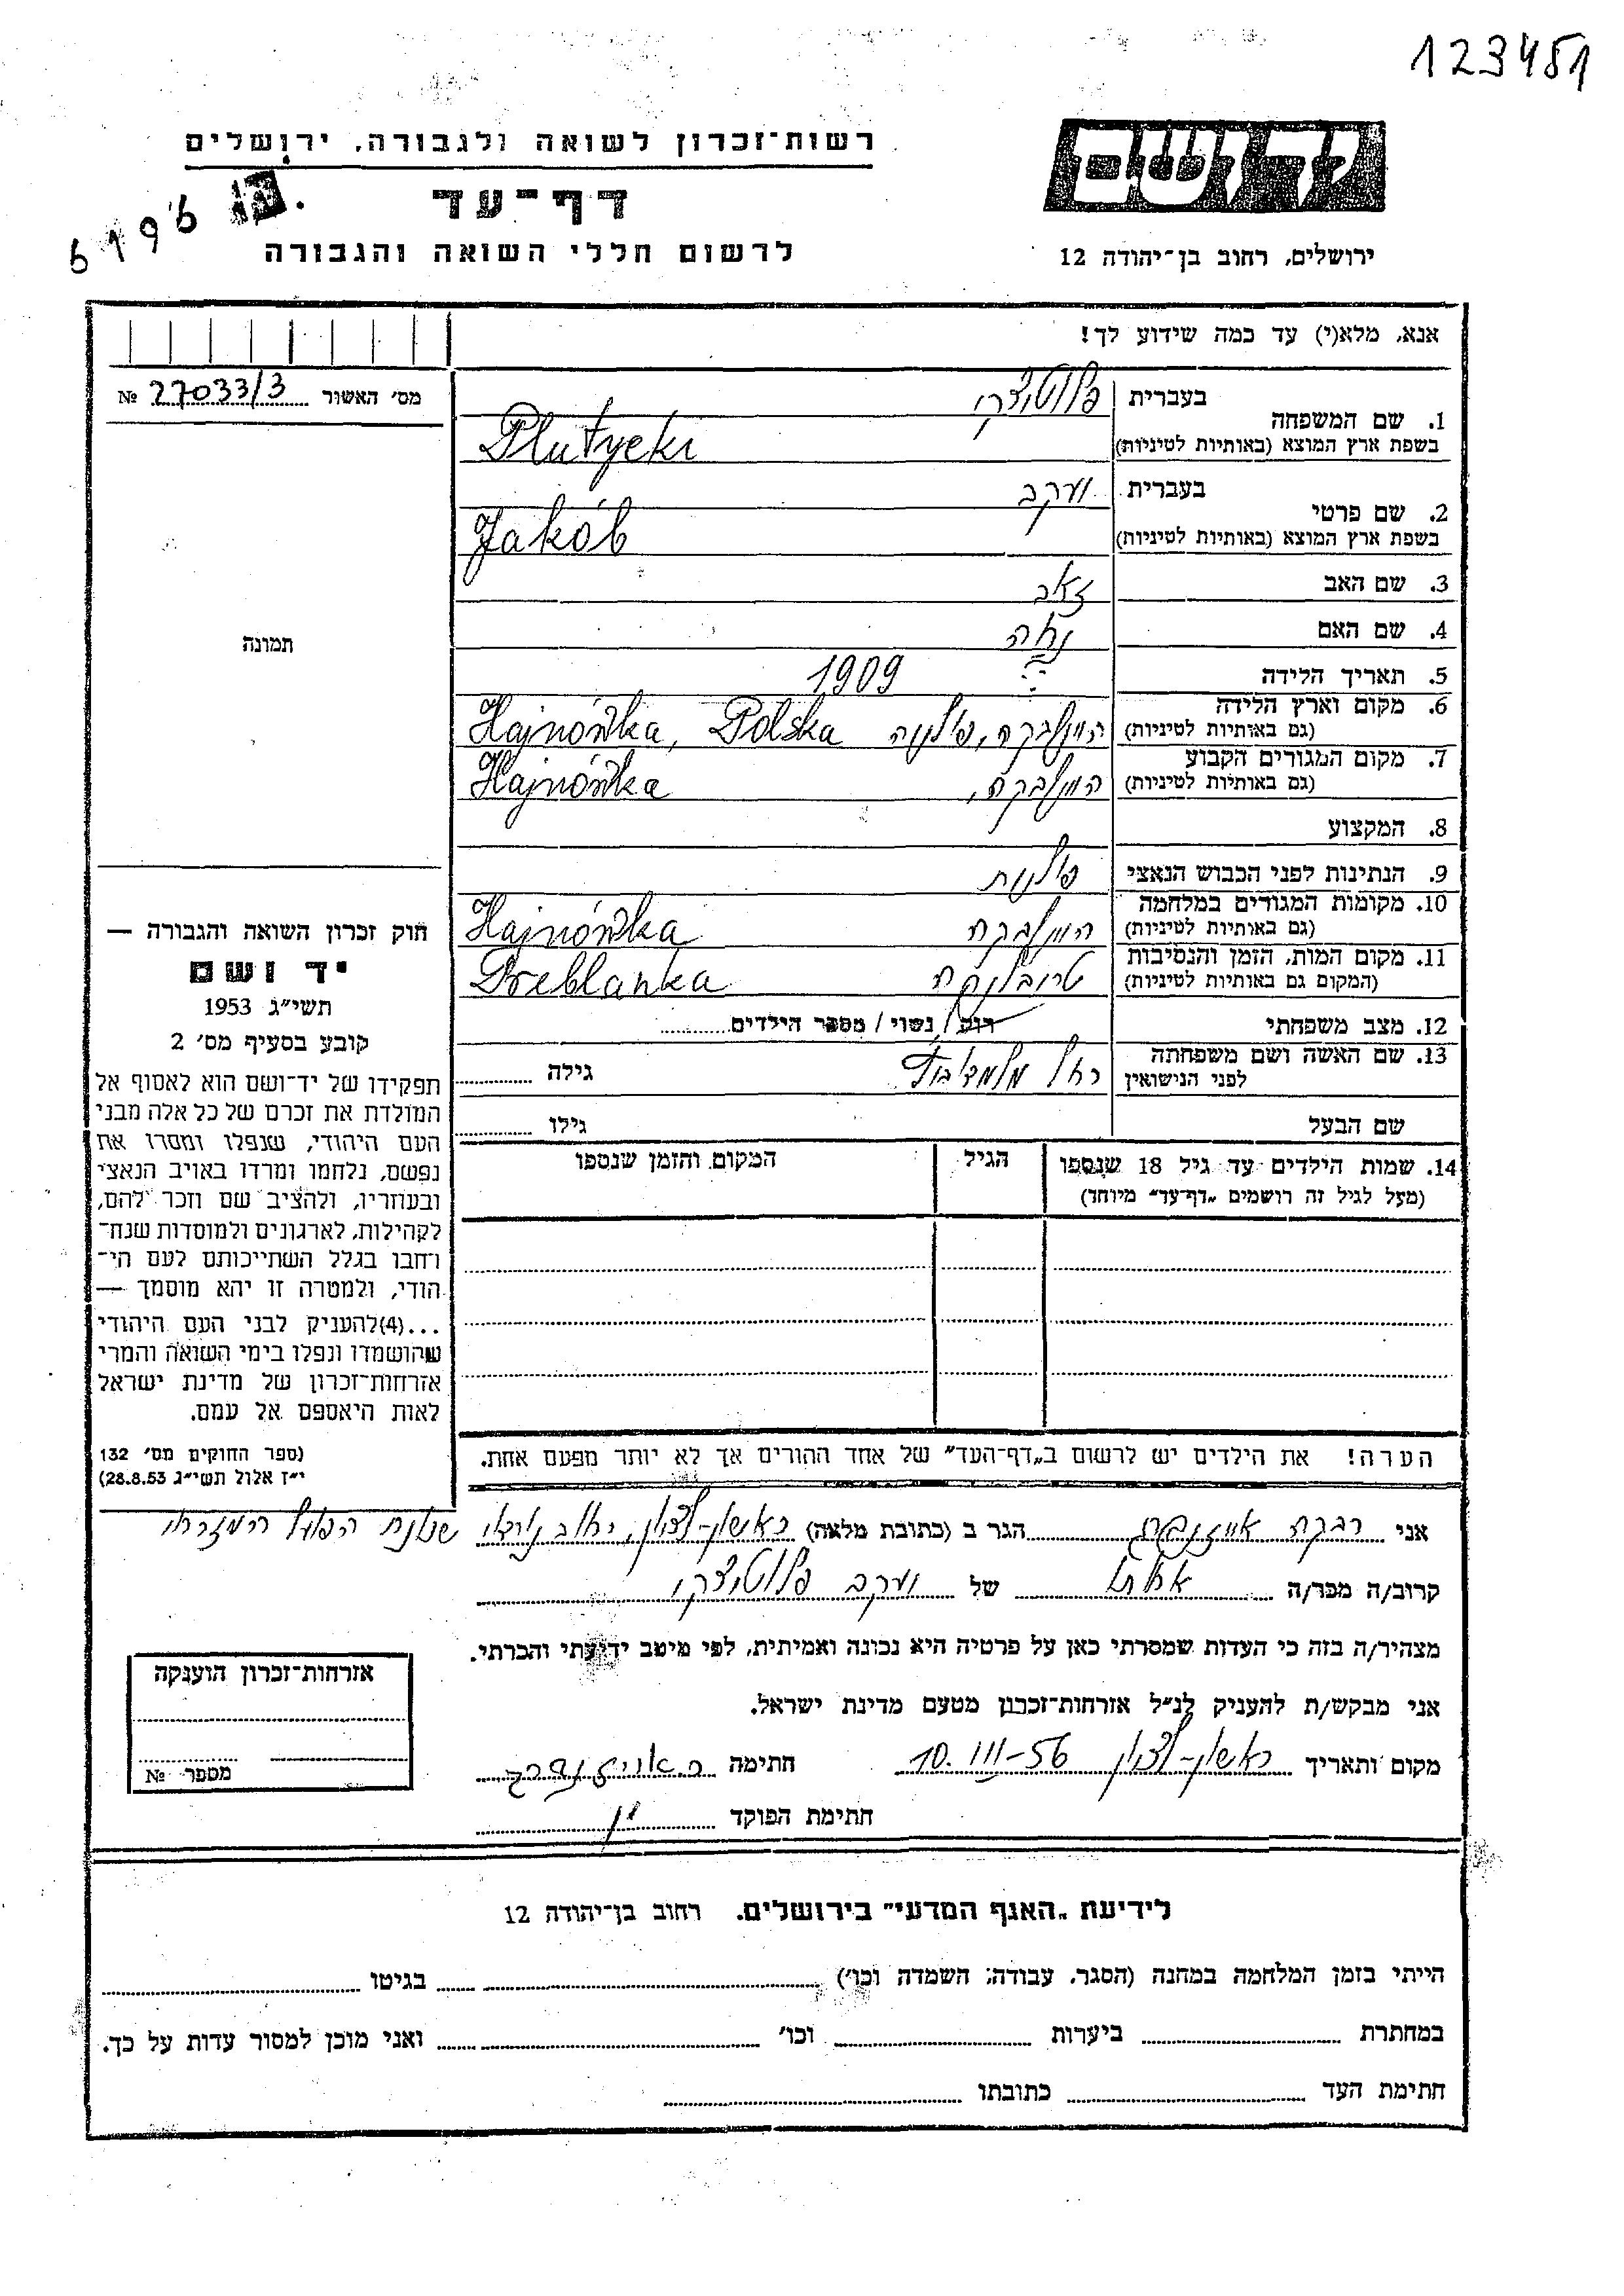 123451
רשות־זכרון לשואה ולגבורה, ירושלים
דף־עד
לרשום חללי השואה והגבורה
יד ושם
ירושלים, רחוב בן־יהודה 12
אנא, מלא(י) עד כמה שידוע לך!
מס׳ האשור № 27033/3
1. שם המשפחה
בעברית פלוטיצקי
בשפת ארץ המוצא (באותיות לטיניות) Plutycki
2. שם פרטי
בעברית יעקב
בשפת ארץ המוצא (באותיות לטיניות) Jakób
3. שם האב זאב
4. שם האם
5. תאריך הלידה 1909
6. מקום וארץ הלידה
(גם באותיות לטיניות) היינובקה, פולניה Hajnówka, Polska
7. מקום המגורים הקבוע
(גם באותיות לטיניות) היינובקה, Hajnówka
8. המקצוע
9. הנתינות לפני הכבוש הנאצי פולנית
10. מקומות המגורים במלחמה
(גם באותיות לטיניות) היינובקה Hajnówka
11. מקום המות, הזמן והנסיבות
(המקום גם באותיות לטיניות) טרבלינקה Treblanka
12. מצב משפחתי רוק / נשוי / מספר הילדים
13. שם האשה ושם משפחתה
לפני הנישואין רחל גילה
שם הבעל גילו
14. שמות הילדים עד גיל 18 שנספו הגיל המקום והזמן שנספו
(מעל לגיל זה רושמים „דף־עד״ מיוחד)
הערה! את הילדים יש לרשום ב„דף־העד״ של אחד ההורים אך לא יותר מפעם אחת.
תמונה
חוק זכרון השואה והגבורה —
יד ושם
תשי״ג 1953
קובע בסעיף מס׳ 2
תפקידו של יד־ושם הוא לאסוף אל
המולדת את זכרם של כל אלה מבני
העם היהודי, שנפלו ומסרו את
נפשם, נלחמו ומרדו באויב הנאצי
ובעוזריו, ולהציב שם וזכר להם,
לקהילות, לארגונים ולמוסדות שנח־
רחבו בגלל השתייכותם לעם הי־
הודי, ולמטרה זו יהא מוסמך —
...(4)להעניק לבני העם היהודי
שהושמדו ונפלו בימי השואה והמרי
אזרחות־זכרון של מדינת ישראל
לאות היאספם אל עמם.
(ספר החוקים מס׳ 132
י״ז אלול תשי״ג 28.8.53)
אני רבקה אייזנברג הגר ב (כתובת מלאה) ראשון־לציון, רחוב שכונת הפועל המזרחי
קרוב/ה מכר/ה אחותו של יעקב פלוטיצקי
מצהיר/ה בזה כי העדות שמסרתי כאן על פרטיה היא נכונה ואמיתית, לפי מיטב ידיעתי והכרתי.
אני מבקש/ת להעניק לנ״ל אזרחות־זכרון מטעם מדינת ישראל.
מקום ותאריך ראשון־לציון 10.III-56 חתימה ר. אייזנברג
חתימת הפוקד
אזרחות־זכרון הוענקה
מספר №
לידיעת „האגף המדעי״ בירושלים. רחוב בן־יהודה 12
הייתי בזמן המלחמה במחנה (הסגר, עבודה, השמדה וכו׳) בגיטו
במחתרת ביערות וכו׳ ואני מוכן למסור עדות על כך.
חתימת העד כתובתו